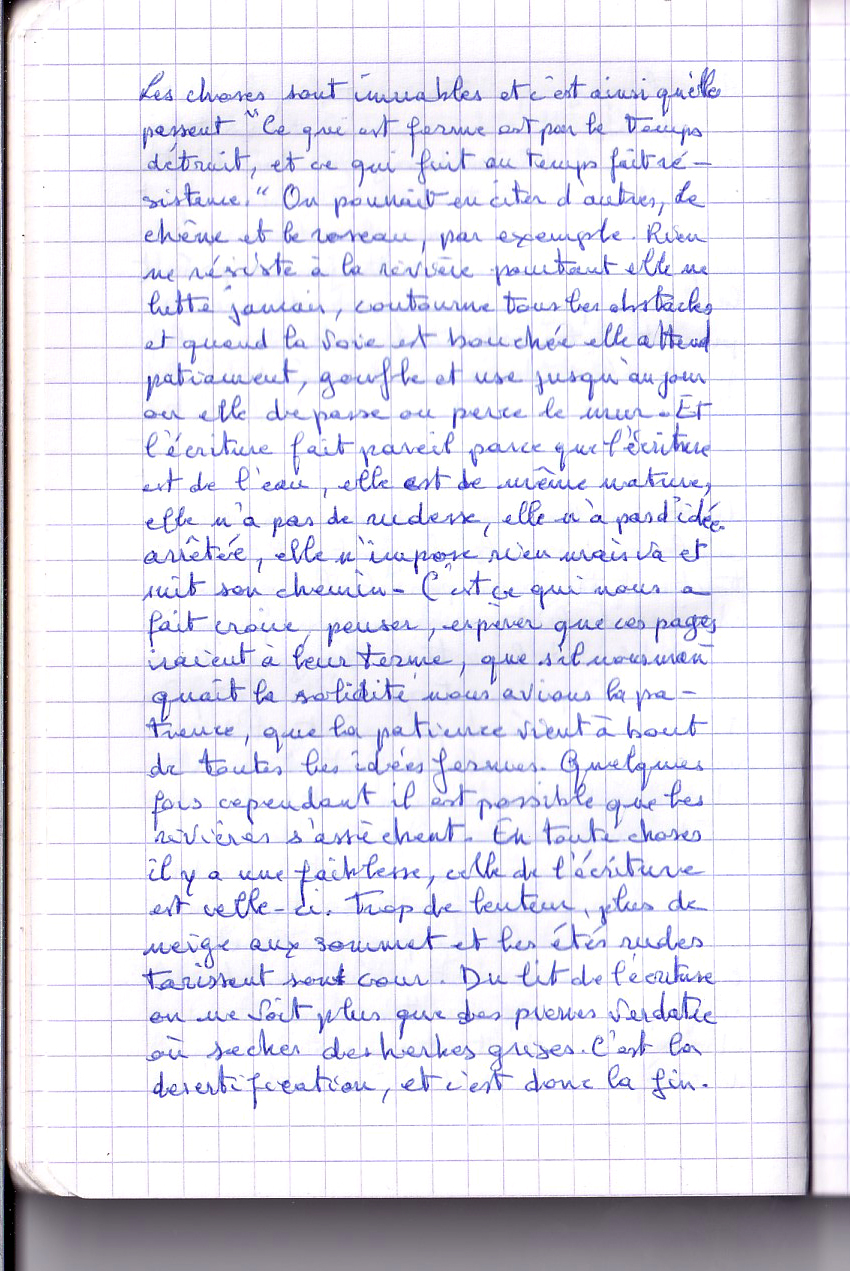 Les choses sont immuables et c'est ainsi qu'elle
passent "Ce qui est ferme est par le temps
détruit, et ce qui fuit au temps fait ré-
sistance." On pourrait en citer d'autres, Le
chêne et le roseau, par exemple. Rien
ne résiste à la rivière pourtant elle ne
lutte jamais, contourne tous les obstacles
et quand la voie est bouchée elle attend
patiamment, gonfle et use jusqu'au jour
ou elle depasse ou perce le mur. Et
l'écriture fait pareil parce que l'écriture
est de l'eau, elle est de même nature,
elle n'a pas de rudesse, elle n'a pas d'idée
arrêtée, elle n'impose rien mais va et
suit son chemin - C'est ce qui nous a
fait croire, penser, espérer que ces pages
iraient à leur terme, que s'il nous man
quait la solidité nous avions la pa-
tience, que la patience vient à bout
de toutes les idées fermes. Quelques
fois cependant il est possible que les
rivières s'assèchent. En toute choses
il y a une faiblesse, celle de l'écriture
est celle-ci. Trop de lenteur, plus de
neige aux sommet et les étés rudes
tarissent son cour. Du lit de l'écriture
on ne voit plus que des pierres verdatre
où secher des herbes grises. C'est la
desertification, et c'est donc la fin.